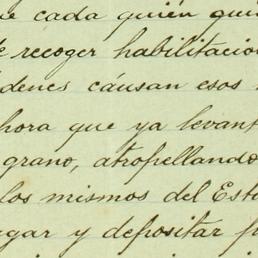 e cada quién qui
recoger habilitacion
denes cáusan esos
hora que ya levant
grano, atropellando
los mismos del Esta
gar y depositar p